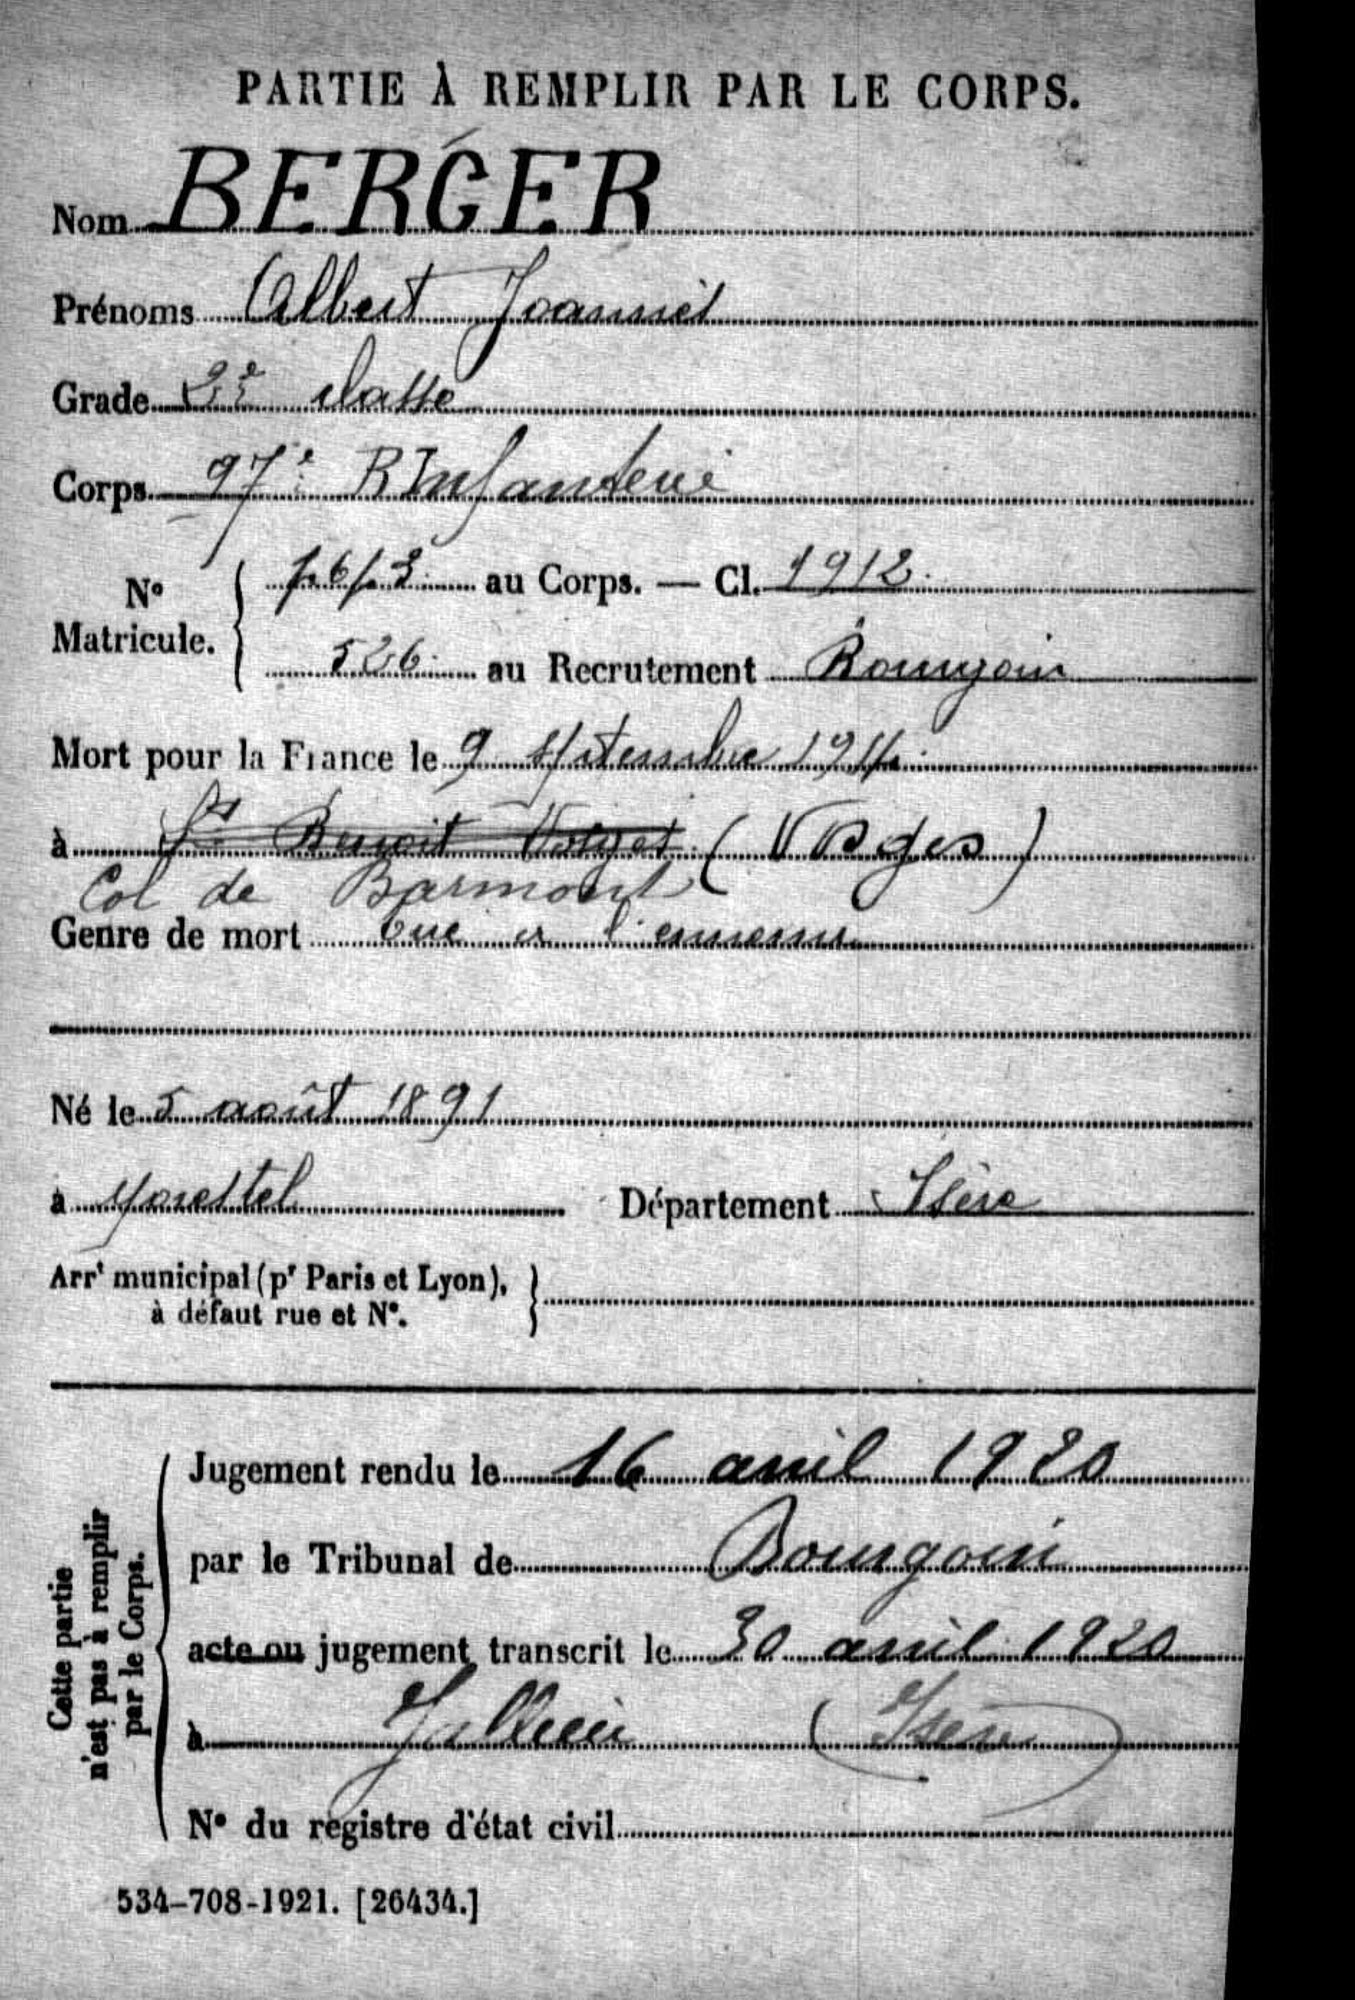 PARTIE À REMPLIR PAR LE CORPS.
Nom BERGER
Prénoms Albert Joannès
Grade 2e classe
Corps 97e R Infanterie
N° Matricule. { au Corps. — Cl. 1912.
526. au Recrutement Bourgoin
Mort pour la France le 9 septembre 1914.
à St Benoit Vosges (Vosges)
Col de Barmont
Genre de mort tué à l'ennemi
Né le 5 août 1891
à Morestel Département Isère
Arrt municipal (pr Paris et Lyon), à défaut rue et N°. }
Cette partie n'est pas à remplir par le Corps.
Jugement rendu le 16 avril 1920
par le Tribunal de Bourgoin
acte ou jugement transcrit le 30 avril 1920
à Jallieu (Isère)
N° du registre d'état civil
534-708-1921. [26434.]